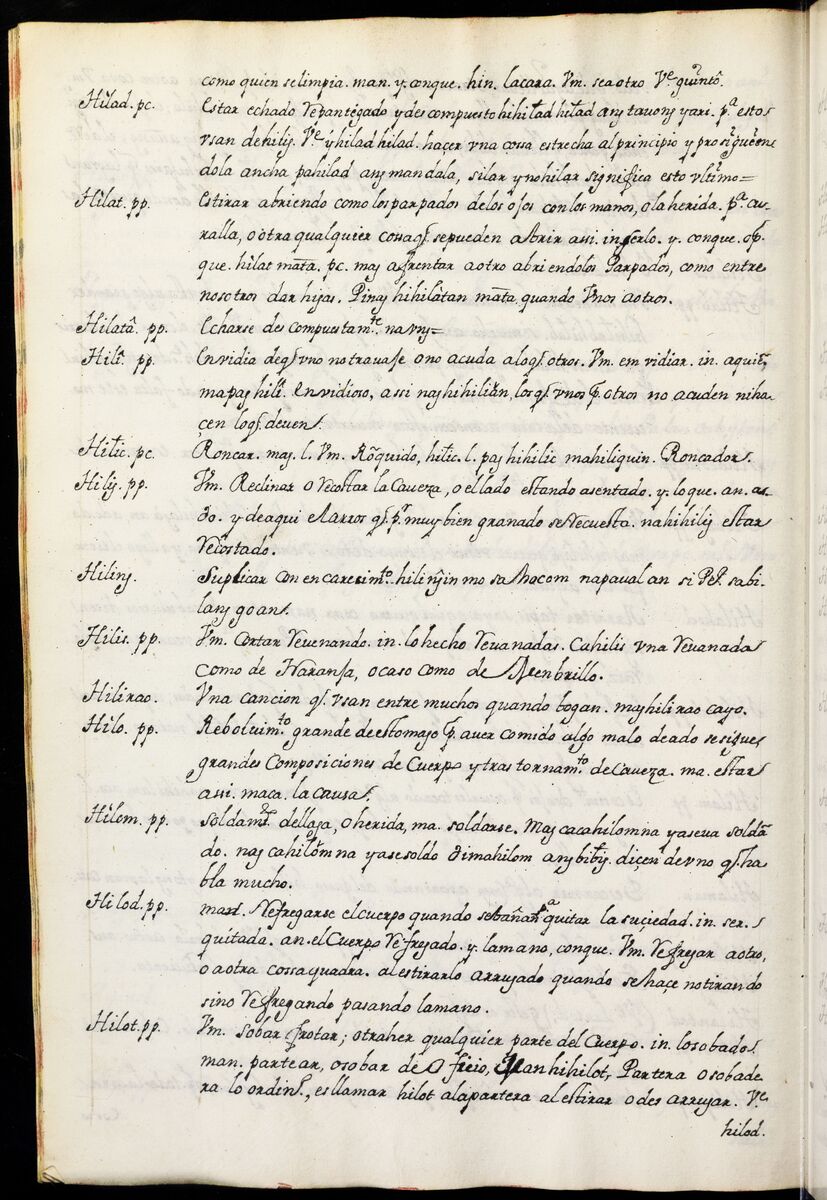 como quien se limpia. man. y. conque. hin. la cara. Vm. sea otro Ve. guintô.
Hilad. pc. Estar echado Repantigado y descompuesto hihilad hilad ang tavong yari. pa. esto
vsan de hilig. Ve. y hilad hilad. haçer vna cossa estrecha al principio y prosiguien
dola ancha pahilad ang mandala, silar y no hilar significa esto vltimo=
Hilat. pp. Estirar abriendo como los parpados de los ojos con los manos, o la herida. pa. cu-
ralla, o otra qualquier cossa q. se pueden abrir assi. in serlo. y. conque. 
que. hilat mata. pc. mag afrentar a otro abriendolos Parpados, como entre
nosotros dar hijas. Pinag hihilàtan mata. quando Vnos aotros.
Hilatâ. pp. Echarse descompuestamte. na vng=
Hilî. pp. Envidia de q. vno no travaje o no acuda a lo q. otros. Vm. em vidiar. in. aquiẽ,
mapag hilî. envidioso, assi nag hihilian, los q. vnos p. otros no acuden ni ha-
cen lo q. deven.
Hilic. pc. Roncar. mag. l. Vm. Rõquido, hilic. l. pag hihilic mahiliquin. Roncador.
Hilig. pp. Vm. Reclinar o Recostar la Caveza, o el lado estando asentado. y. lo que. an. a-
do. y de aqui el Arros q. pr. muy bien granado se Recuesta. nahihilig estar
Recostado.
Hiling. Suplicar con encaresimto. hilingin mo sa Macom na paualan si Pe. sa bi-
langoan.
Hilis. pp. Vm. Cortar Revenando. in. lo hecho Revanadas. Cahilis vna Revanada
como de Naranja, o caso como de Menbrillo.
Hilirao. Vna cancion q. vsan entre muchos quando bogan. maghilirao cayo.
Hilo. pp. Reboluimto. grande de estomago p. auer comido algo malo de ado se sigue
grandes Composiciones de Cuerpo y trastornamto. de Caveza. ma. estar
assi. maca. la causa.
Hilom. pp. Soldamto. de llaga, o herida, ma. soldarse. Mag cacahilom na ya se va soldã
do. nag cahilom na ya se soldo di mahilom ang bibig. diçen de vno q. ha-
bla mucho.
Hilod. pp. mag. Refregarse el cuerpo quando se bañan pa. quitar la suçiedad. in. ser.
quitada. an. el Cuerpo Refregado. y. la mano, conque. Vm. Refregar a otro,
o a otra cossa quadra. al estirar lo arrugado quando se haçe no tirando
sino Refregando pasando la mano.
Hilot. pp. Vm. sobar frotar; o traher qualquier parte del Cuerpo. in. lo sobado.
man. partear, o sobar de Oficio, Manhihilot, Partera o sobade
ra lo ordino., es llamar hilot a la partera al estirar o desarrugar. Ve.
hilod.